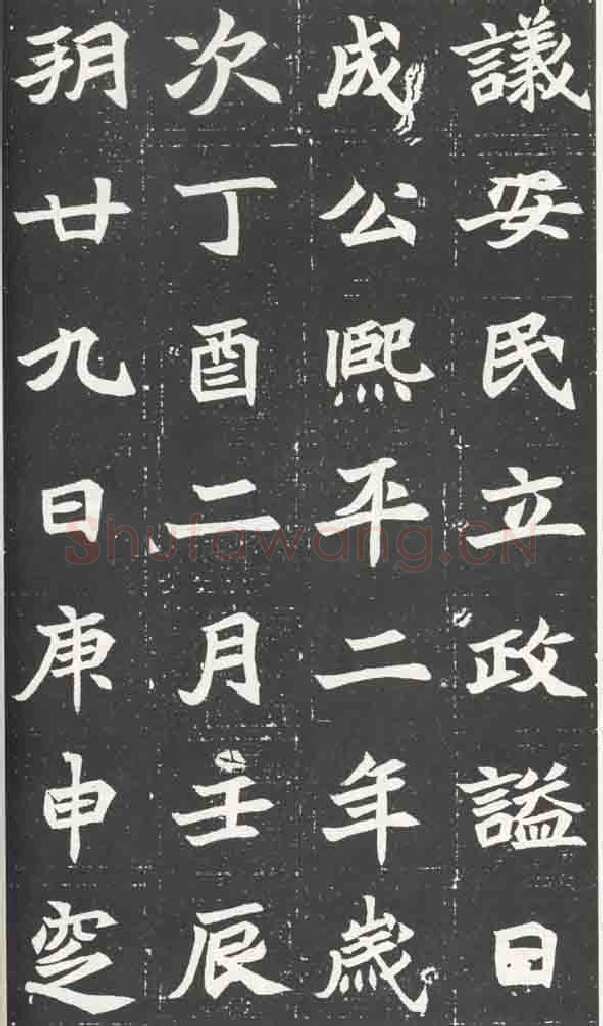 議安民立政謚曰
成公熙平二年歲
次丁酉二月壬辰
朔廿九日庚申窆
Shufawang.CN